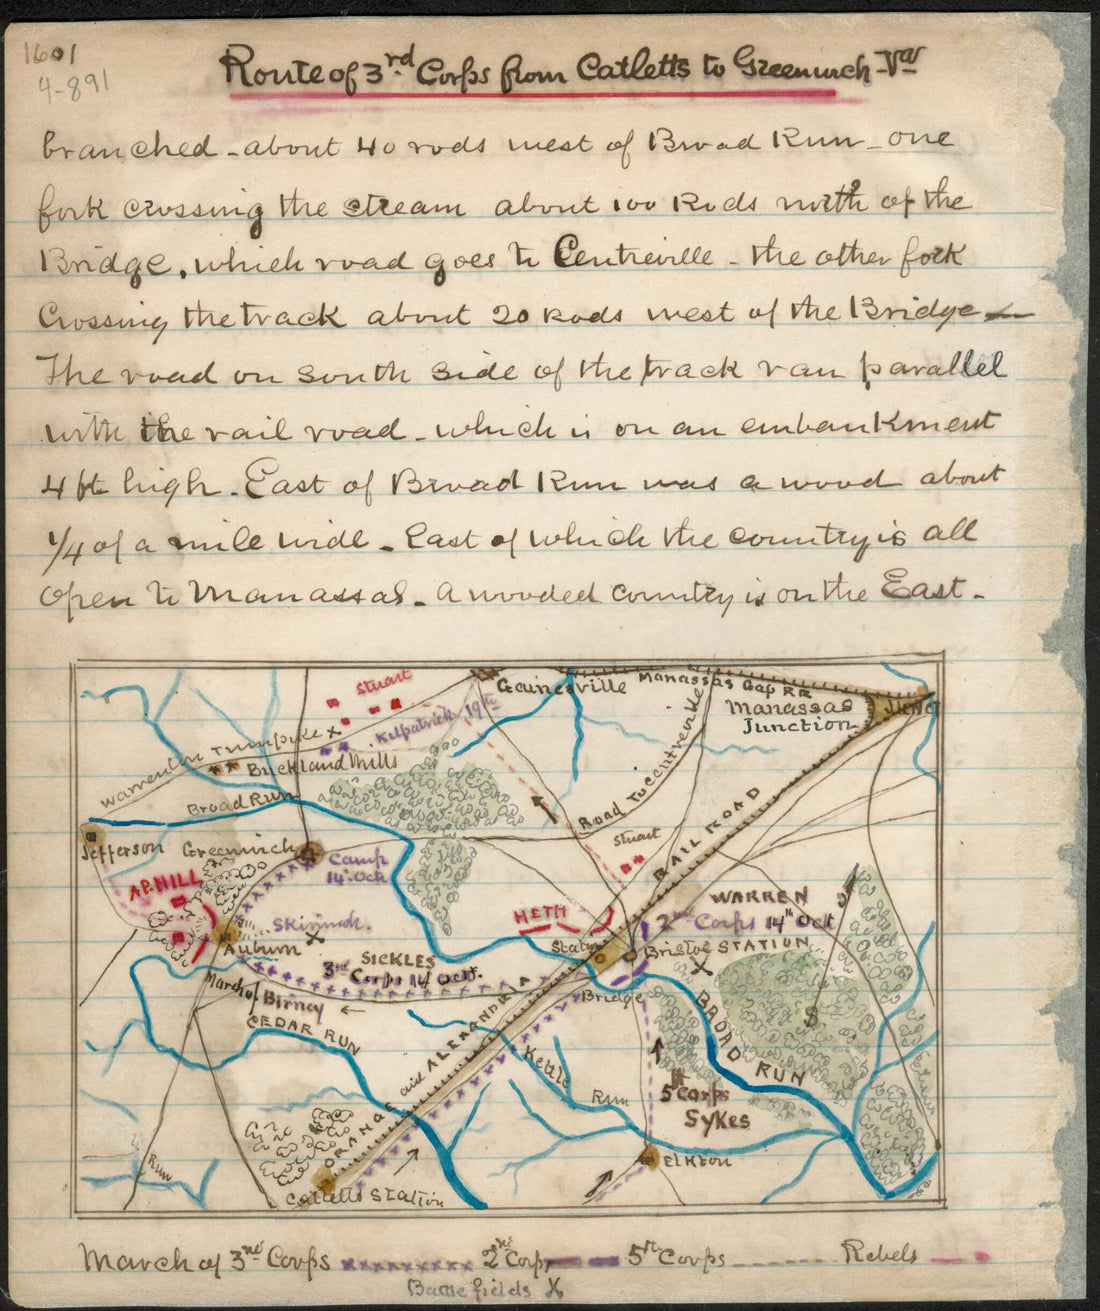 1601
4-891
Route of 3rd Corps from Catletts to Greenwich - Va
branched - about 40 rods west of Broad Run - one
fork crossing the stream about 100 Rods north of the
Bridge, which road goes to Centreville - the other fork
Crossing the track about 20 Rods west of the Bridge -
The road on south side of the track ran parallel
with the rail road - which is on an embankment
4 ft high. East of Broad Run was a wood about
1/4 of a mile wide - East of which the country is all
open to Manassas - a wooded country is on the East -
Stuart
Gainesville
Manassas Gap RR
Manassas
Junction
Junct
Kilpatrick 19th
Warrenton Turnpike X
Buckland Mills
Broad Run
Road to Centreville
Jefferson
Greenwich
Camp
14 Oct
Stuart
RAIL ROAD
A.P. HILL
Skirmish.
X
Auburn
HETH
WARREN
2nd Corps 14th Oct
Station
Bristoe STATION
X
SICKLES
3rd Corps 14 Oct.
March of Birney
Bridge
CEDAR RUN
ORANGE and ALEXANDRIA
BROAD RUN
Kettle Run
5th Corps
Sykes
Elkton
Run
Catletts Station
March of 3rd Corps
2nd Corps
5th Corps
Rebels
Battle fields X